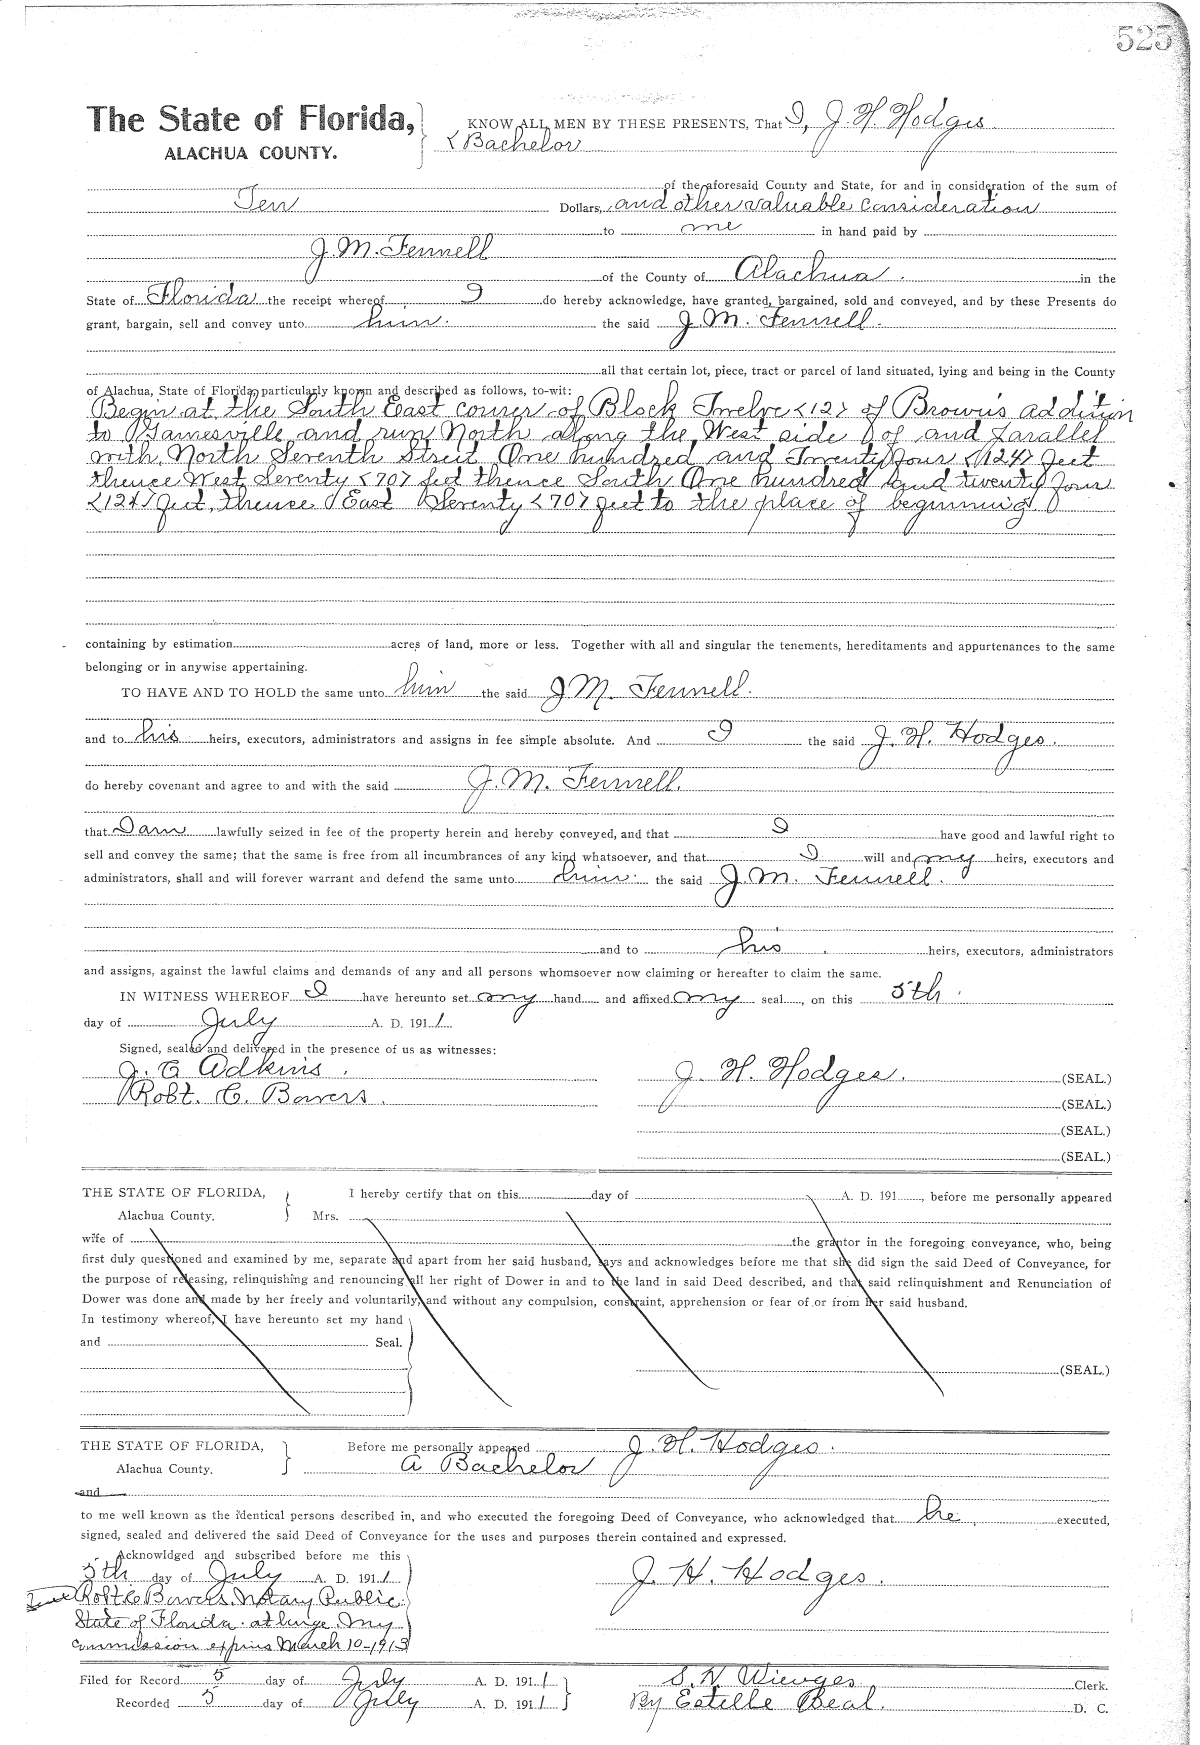 525
The State of Florida,
ALACHUA COUNTY.
KNOW ALL MEN BY THESE PRESENTS, That I, J. H. Hodges
<Bachelor
of the aforesaid County and State, for and in consideration of the sum of
Ten Dollars, and other valuable consideration
to me in hand paid by
J. M. Fennell
of the County of Alachua. in the
State of Florida the receipt whereof I do hereby acknowledge, have granted, bargained, sold and conveyed, and by these Presents do
grant, bargain, sell and convey unto him. the said J. M. Fennell.
all that certain lot, piece, tract or parcel of land situated, lying and being in the County
of Alachua, State of Florida, particularly known and described as follows, to-wit:
Begin at the South East corner of Block Twelve <12> of Brown's addition
to Gainesville and run North along the West side of and Parallel
with North Seventh Street One hundred and Twenty four <124> feet
thence West Seventy <70> feet thence South One hundred and twenty four
<124> feet, thence East Seventy <70> feet to the place of beginning
containing by estimation acres of land, more or less. Together with all and singular the tenements, hereditaments and appurtenances to the same
belonging or in anywise appertaining.
TO HAVE AND TO HOLD the same unto him the said J M. Fennell.
and to his heirs, executors, administrators and assigns in fee simple absolute. And I the said J. H. Hodges.
do hereby covenant and agree to and with the said J. M. Fennell.
that I am lawfully seized in fee of the property herein and hereby conveyed, and that I have good and lawful right to
sell and convey the same; that the same is free from all incumbrances of any kind whatsoever, and that I will and my heirs, executors and
administrators, shall and will forever warrant and defend the same unto him. the said J. M. Fennell.
and to his heirs, executors, administrators
and assigns, against the lawful claims and demands of any and all persons whomsoever now claiming or hereafter to claim the same.
IN WITNESS WHEREOF I have hereunto set my hand and affixed my seal, on this 5th.
day of July A. D. 1911.
Signed, sealed and delivered in the presence of us as witnesses:
J. C Adkins.
Robt. C. Bowers.
J. H. Hodges. (SEAL.)
(SEAL.)
(SEAL.)
(SEAL.)
THE STATE OF FLORIDA,
Alachua County.
I hereby certify that on this day of A. D. 191, before me personally appeared
Mrs.
wife of the grantor in the foregoing conveyance, who, being
first duly questioned and examined by me, separate and apart from her said husband, says and acknowledges before me that she did sign the said Deed of Conveyance, for
the purpose of releasing, relinquishing and renouncing all her right of Dower in and to the land in said Deed described, and that said relinquishment and Renunciation of
Dower was done and made by her freely and voluntarily, and without any compulsion, constraint, apprehension or fear of or from her said husband.
In testimony whereof, I have hereunto set my hand
and Seal.
(SEAL.)
THE STATE OF FLORIDA,
Alachua County.
Before me personally appeared J. H. Hodges.
a Bachelor
and
to me well known as the identical persons described in, and who executed the foregoing Deed of Conveyance, who acknowledged that he executed,
signed, sealed and delivered the said Deed of Conveyance for the uses and purposes therein contained and expressed.
Acknowldged and subscribed before me this
5th day of July A. D. 1911
Robt C Bowers. Notary Public
State of Florida. at large. My
Commission expires March 10-1913
J. H. Hodges.
Filed for Record 5 day of July A. D. 1911
Recorded 5 day of July A. D. 1911
S. H. Wienges Clerk.
By Estelle Beal. D. C.